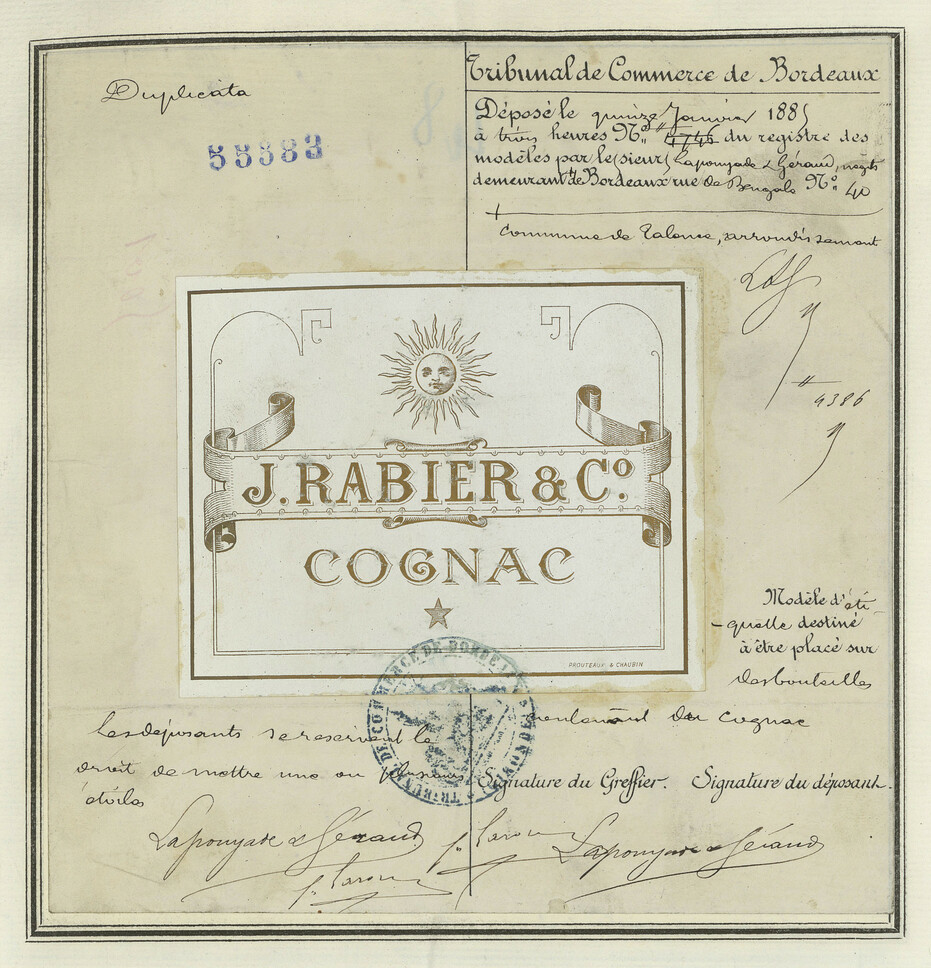 Duplicata
55583
Tribunal de Commerce de Bordeaux
Déposé le quinze Janvier 1885
à trois heures N° 4746 du registre des
modèles par les sieurs Lapouyade & Géraud, négts
demeurant à Bordeaux rue de Bengale N° 40
Commune de Talence, arrondissement
L & G
4386
J. RABIER & Co.
COGNAC
PROUTEAUX & CHAUBIN
Modèle d'éti-
-quette destiné
à être placé sur
des bouteilles
contenant du cognac
TRIBUNAL DE COMMERCE DE BORDEAUX
Les déposants se reservent le
droit de mettre une ou plusieurs
étoiles
Signature du Greffier. Signature du déposant.
Lapouyade & Géraud
Lapouyade & Géraud